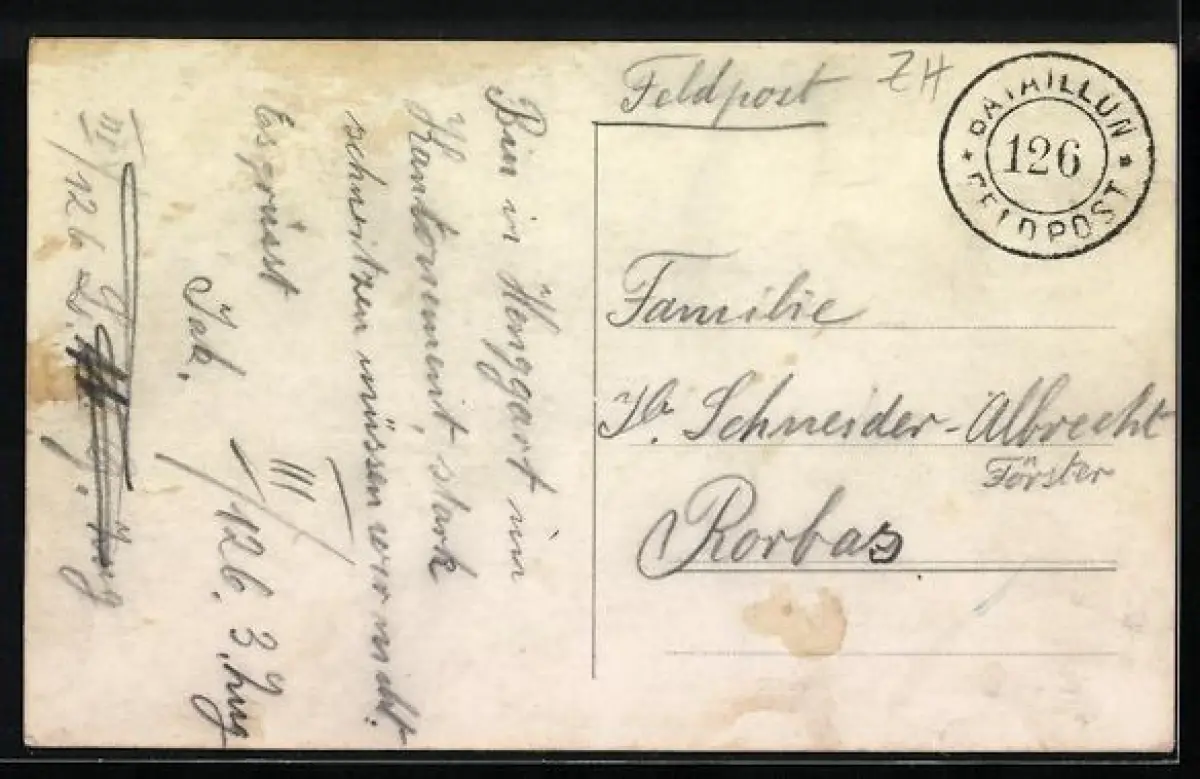 Feldpost
ZH
BATAILLON
126
FELDPOST
Familie
Hr. Schneider-Albrecht
Förster
Rorbas
Bin in Henggart im
Kantonnement, stark
schwitzen müssen wir nicht.
Es grüsst
Jak.
III/126. 3. Zug
III/126
Zug